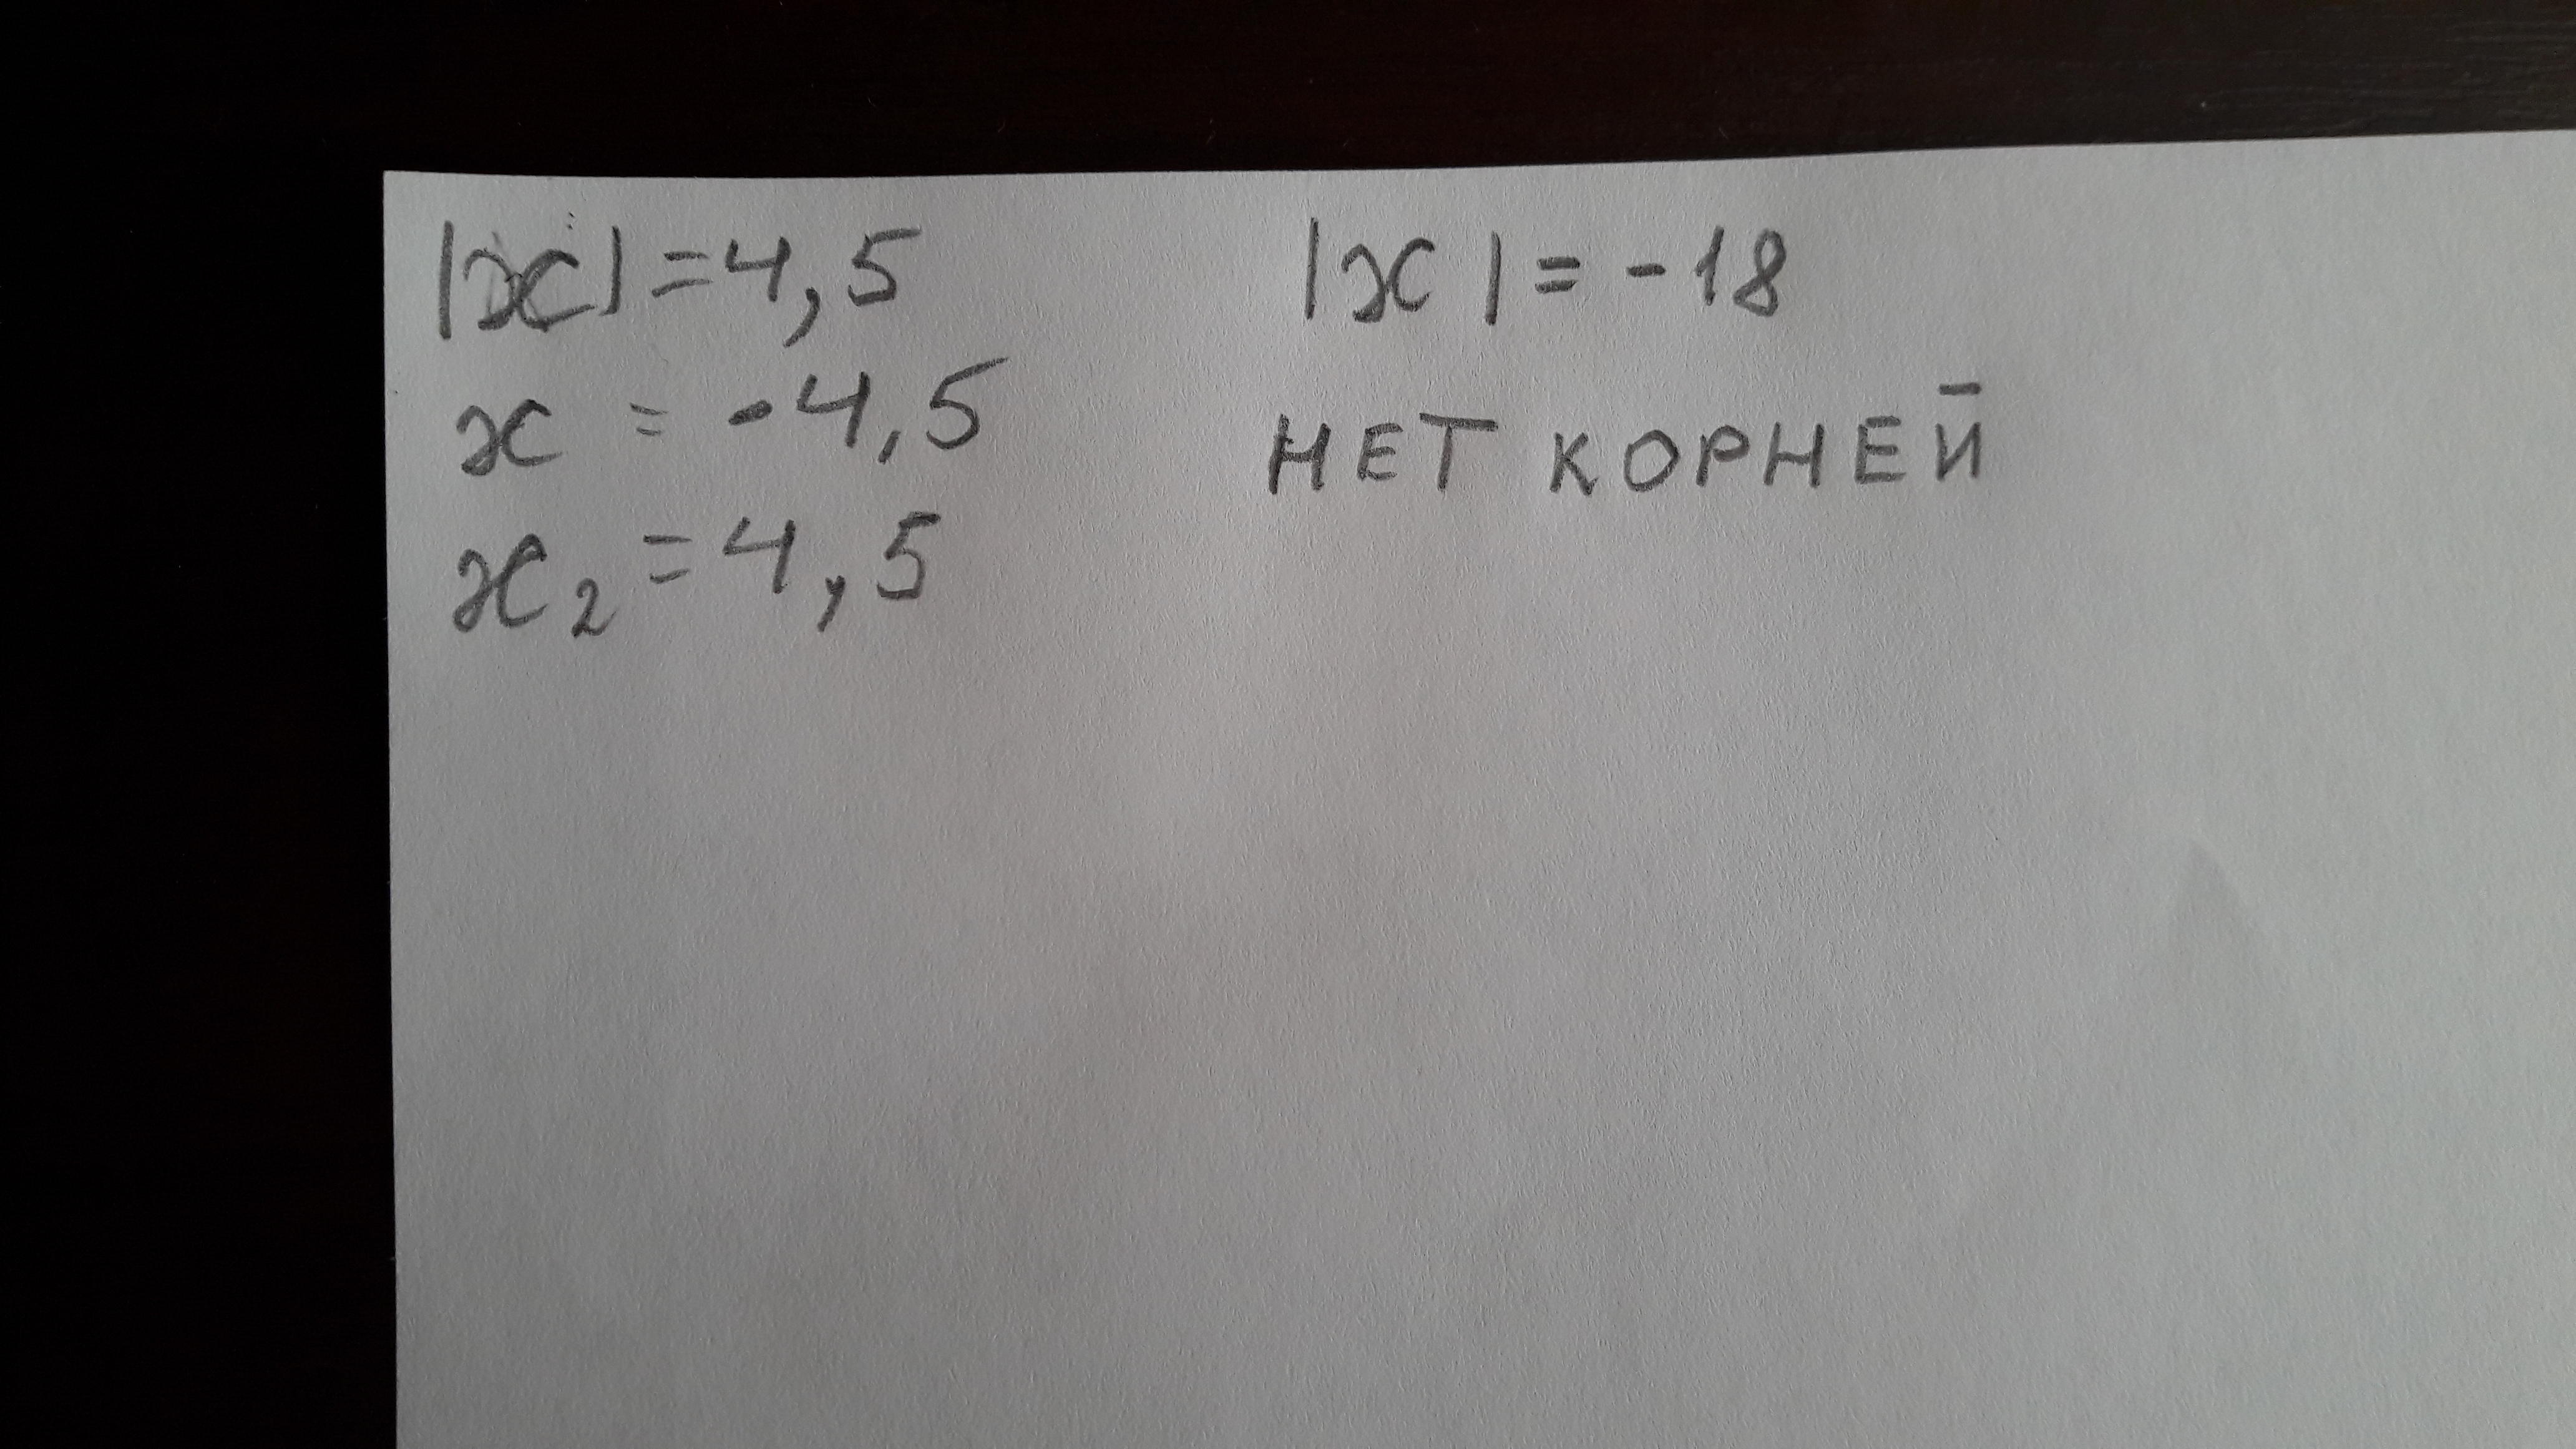 |x| = 4,5
x = -4,5
x₂ = 4,5
|x| = -18
НЕТ КОРНЕЙ